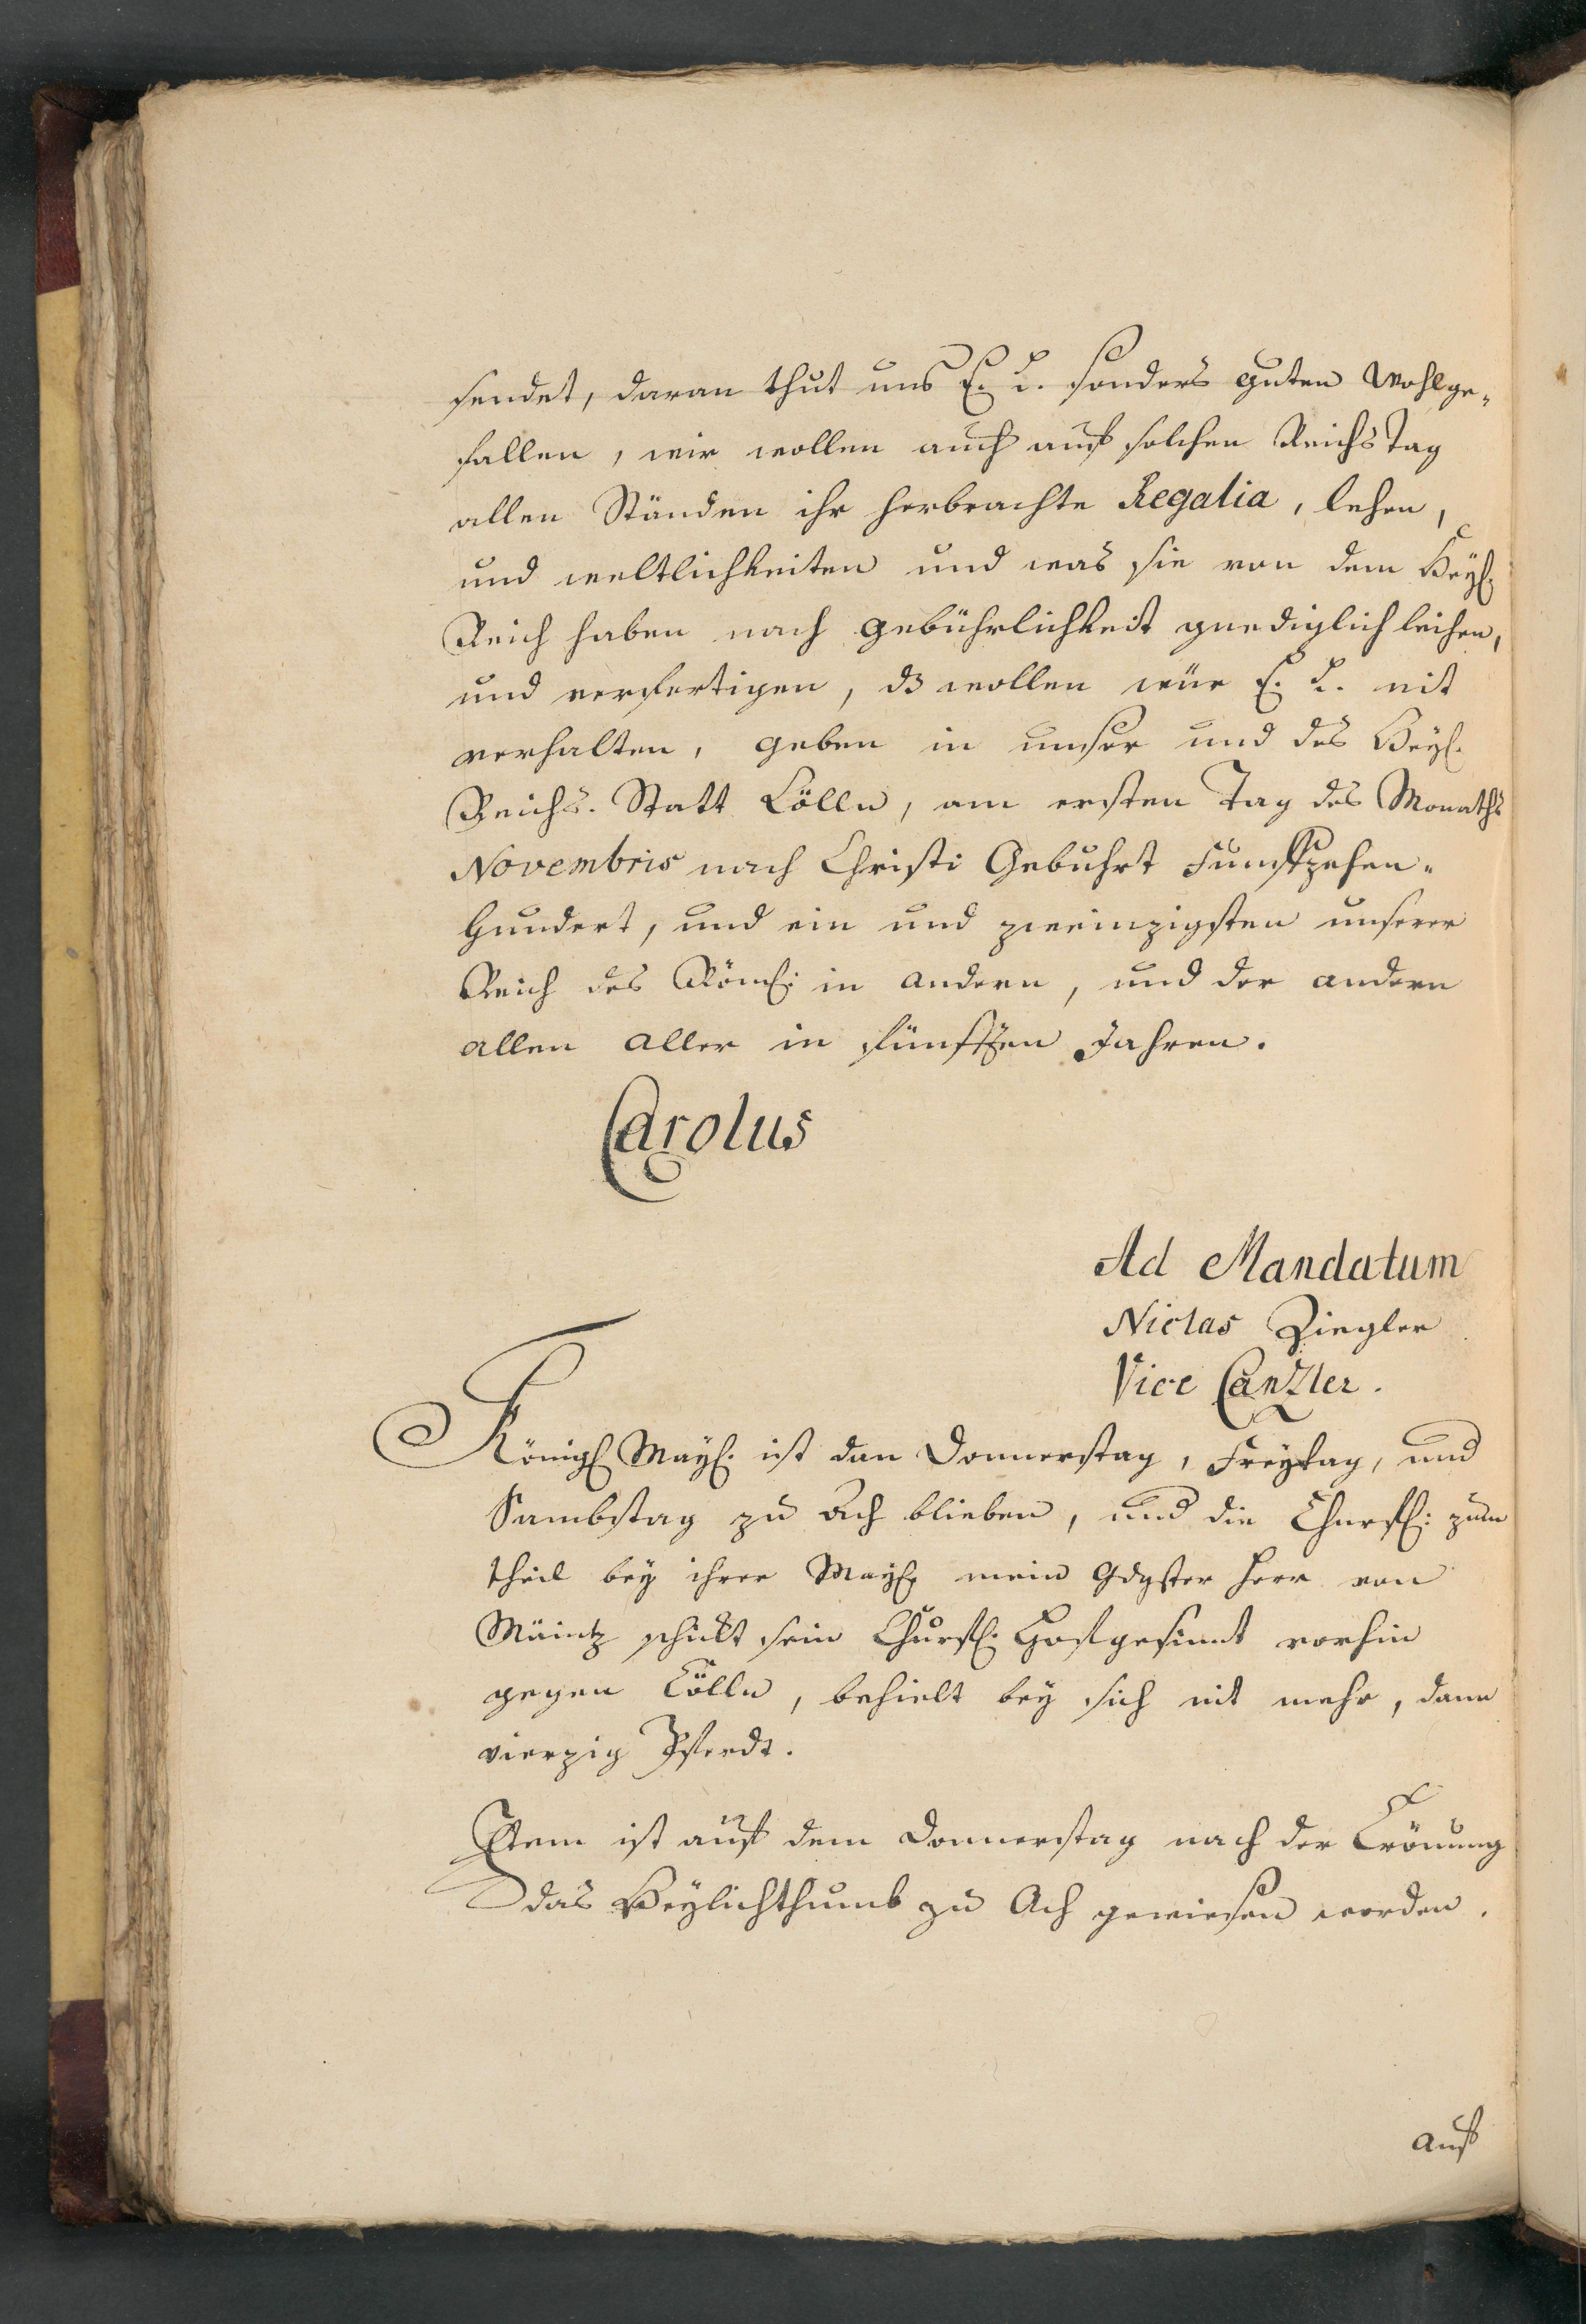 sendet, daran thut uns E. L. sonders guten Wohlge„
fallen, wir wollen auch auf solchen Reichs Tag
allen Ständen ihr herbrachte Regalia, lehen,
und weltlichkeiten und was sie von dem Heyl:
Reich haben nach gebührlichkeit gnediglich leihen,
und verfertigen, dz wollen wür E. L. nit
verhalten, geben in unser und des Heyl.
Reichs. Statt Cölln, am ersten Tag des Monaths
Novembris nach Christi Gebuhrt Funffzehen„
hundert, und ein und zweinzigsten unserer
Reich des Röml: in andern, und der andern
allen aller in fünfften Jahren.
Carolus
Ad Mandatum
Niclas Ziegler
Vice Canzler.
Königl Mayl. ist dan Donnerstag, Freytag, und
Sambstag zu Ach blieben, und die Churfl: zum
theil bey ihrer Mayl. mein Gdgster Herr von
Mäintz schickt sein Churfl. Hofgesindt vorhin
gegen Cölln, behielt bey sich nit mehr, dann
vierzig Pferdt.
Item ist auf dem Donnerstag nach der Crönung
das Heylichthumb zu Ach gewiesen worden.
Auf